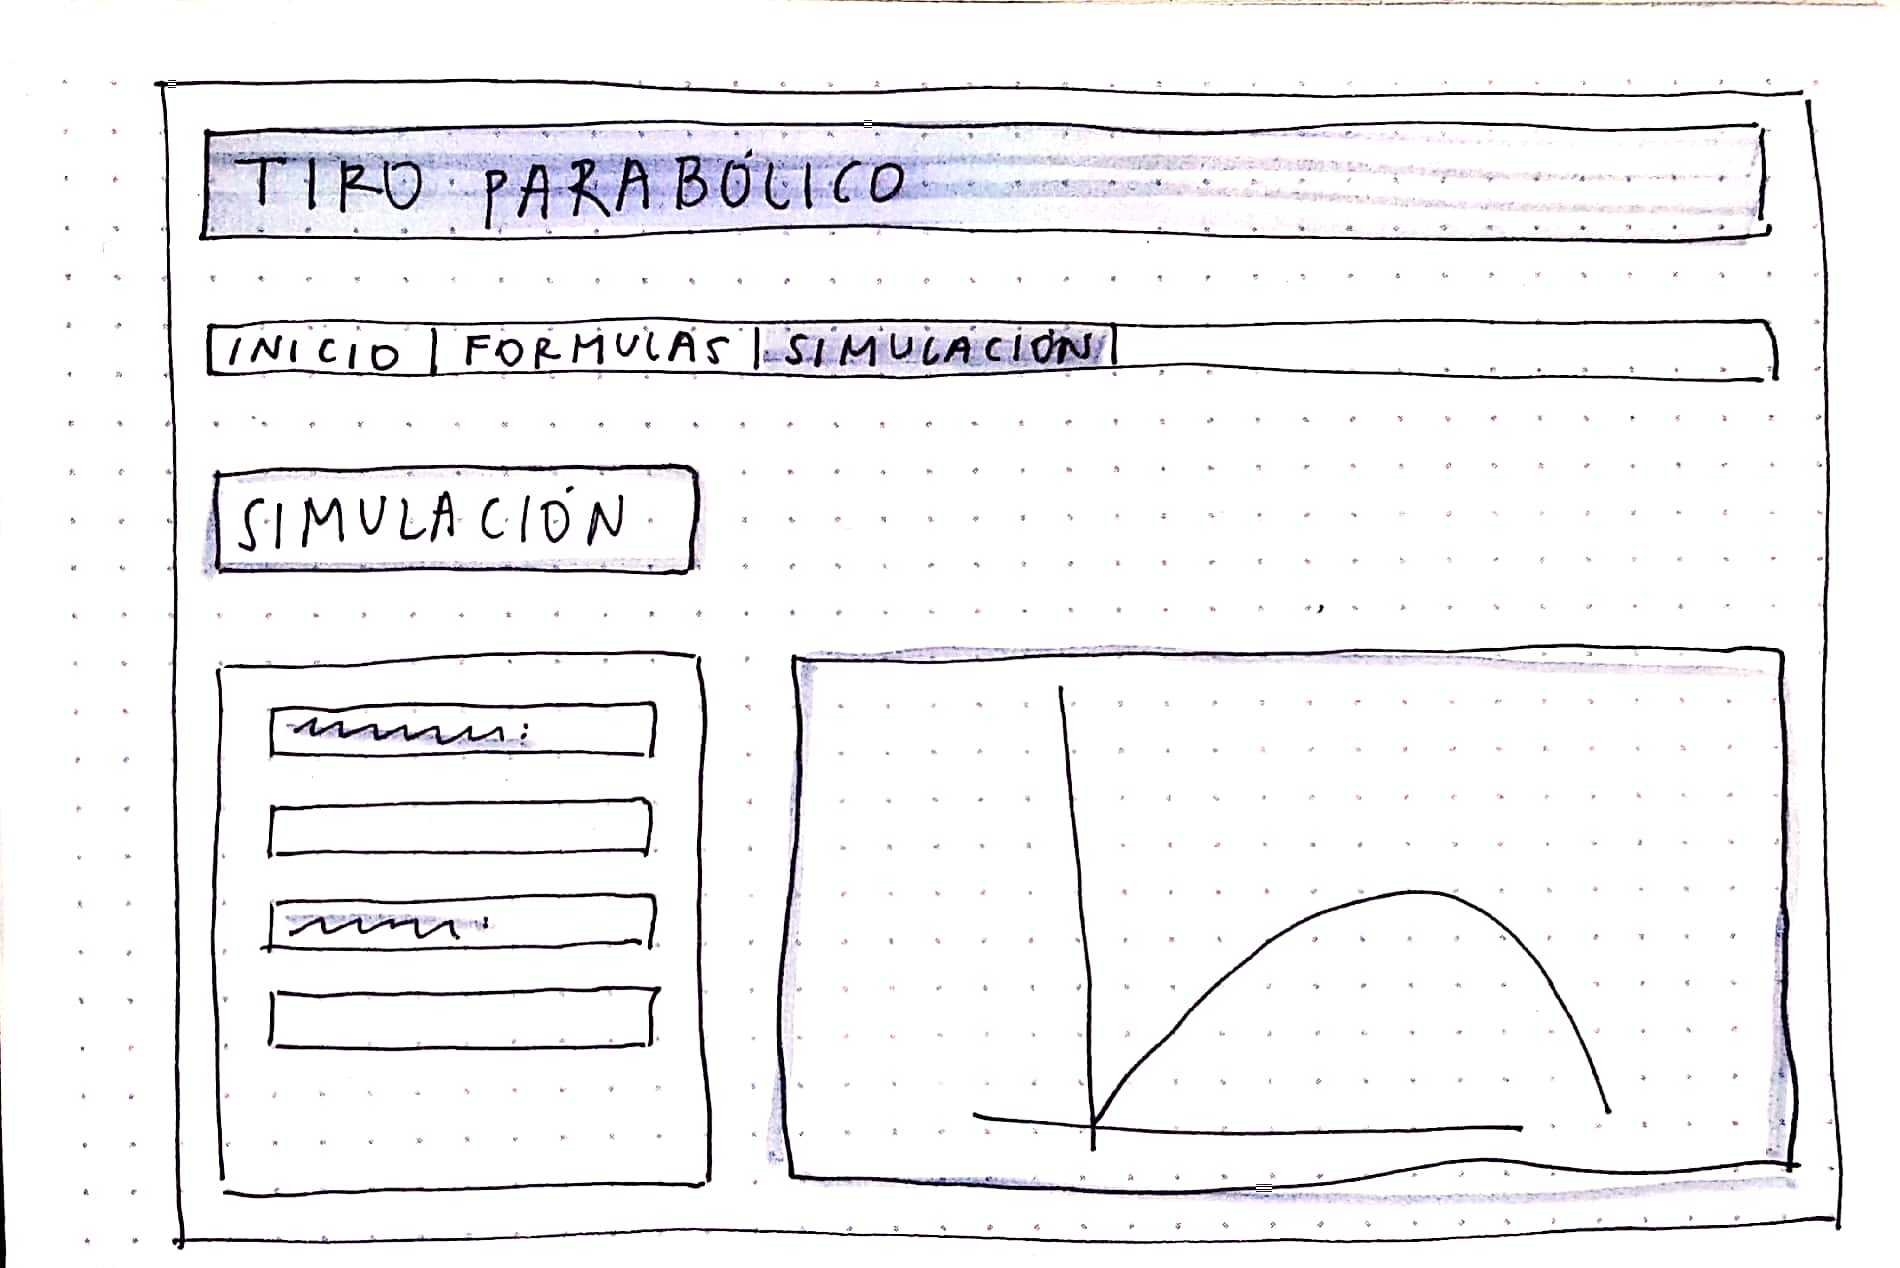 TIRO PARABÓLICO
INICIO FORMULAS SIMULACIÓN
SIMULACIÓN